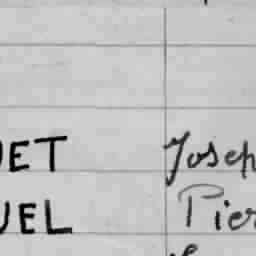 UET Joseph
UEL Pier